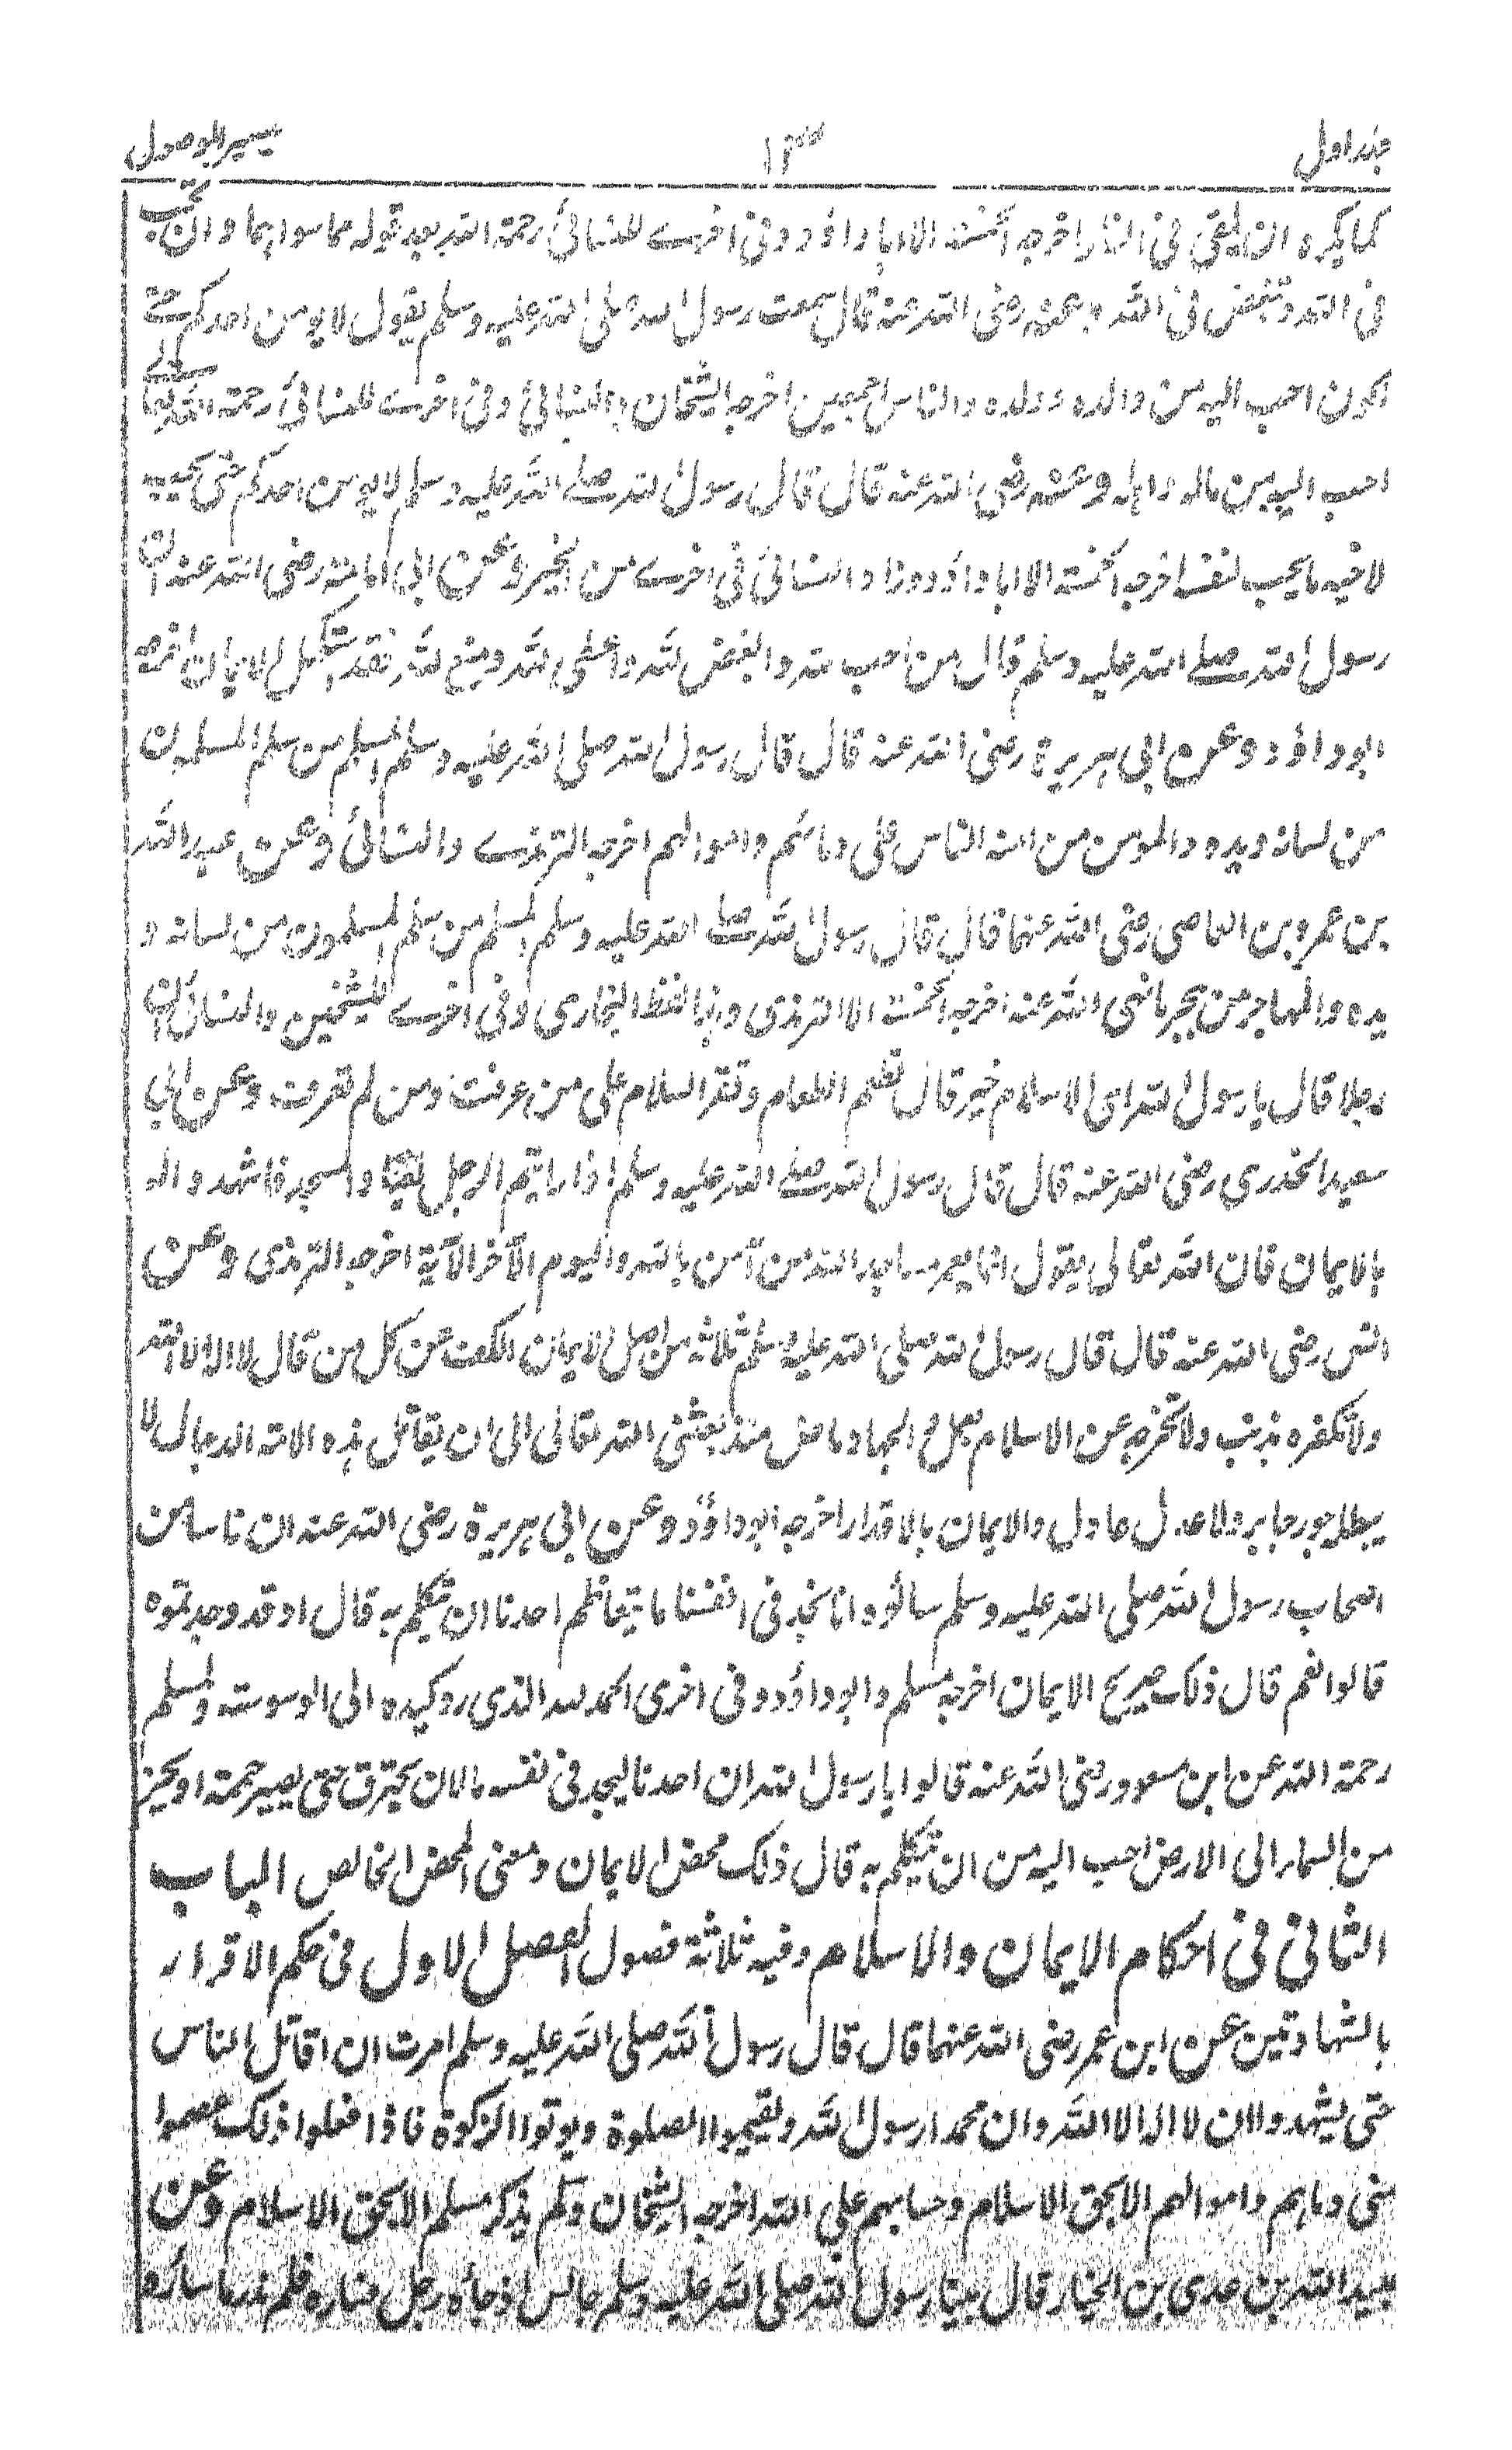 جلد اول ۱۳ تيسير الوصول
كما يكره ان يلقى فى النار اخرجه الخمسة الا ابا داؤد وفى اخرى للنسائى رحمة الله بعد قوله مما سواهما وان يحب
فى الله ويبغض فى الله وعنه رضى الله عنه قال سمعت رسول الله صلى الله عليه وسلم يقول لا يومن احدكم حتى
اكون احب اليه من والده وولده والناس اجمعين اخرجه الشيخان والنسائى وفى اخرى للنسائى رحمة الله تعالى
احب اليه من ماله واهله وعنه رضى الله عنه قال قال رسول الله صلى الله عليه وسلم لا يومن احدكم حتى يحب
لاخيه ما يحب لنفسه اخرجه الخمسة الا ابا داؤد وزاد النسائى فى اخرى من الخير وعن ابى امامة رضى الله عنه ان
رسول الله صلى الله عليه وسلم قال من احب لله وابغض لله واعطى لله ومنع لله فقد استكمل الايمان اخرجه
ابو داؤد وعن ابى هريرة رضى الله عنه قال قال رسول الله صلى الله عليه وسلم المسلم من سلم المسلمون
من لسانه ويده والمومن من امنه الناس على دمائهم واموالهم اخرجه الترمذى والنسائى وعن عبد الله
بن عمرو بن العاصى رضى الله عنهما قال قال رسول الله صلى الله عليه وسلم المسلم من سلم المسلمون من لسانه و
يده والمهاجر من هجر ما نهى الله عنه اخرجه الخمسة الا الترمذى وهذا لفظ البخارى وفى اخرى للشيخين والنسائى ان
رجلا قال يا رسول الله اى الاسلام خير قال تطعم الطعام وتقرا السلام على من عرفت ومن لم تعرف وعن ابى
سعيد الخدرى رضى الله عنه قال قال رسول الله صلى الله عليه وسلم اذا رايتم الرجل يعتاد المسجد فاشهدوا له
بالايمان فان الله تعالى يقول انما يعمر مساجد الله من آمن بالله واليوم الآخر الآية اخرجه الترمذى وعن
انس رضى الله عنه قال قال رسول الله صلى الله عليه وسلم ثلاثة من اصل الايمان الكف عن كل من قال لا اله الا الله
ولا تكفره بذنب ولا تخرجه عن الاسلام بعمل والجهاد ماض منذ بعثنى الله تعالى الى ان يقاتل هذه الامة الدجال لا
يبطله جور جاير ولا عدل عادل والايمان بالاقدار اخرجه ابو داؤد وعن ابى هريرة رضى الله عنه ان ناسا من
اصحاب رسول الله صلى الله عليه وسلم سالوه انا نجد فى انفسنا ما يتعاظم احدنا ان يتكلم به قال اوقد وجدتموه
قالوا نعم قال ذلك صريح الايمان اخرجه مسلم وابو داؤد وفى اخرى الحمد لله الذى رد كيده الى الوسوسة ولمسلم
رحمة الله عن ابن مسعود رضى الله عنه قالوا يا رسول الله ان احدنا ليجد فى نفسه ما لان يحترق حتى يصير حممة او يخر
من السماء الى الارض احب اليه من ان يتكلم به قال ذلك محض الايمان ومعنى المحض الخالص الباب
الثانى فى احكام الايمان والاسلام وفيه ثلاثة فصول الفصل الاول فى حكم الاقرار
بالشهادتين عن ابن عمر رضى الله عنهما قال قال رسول الله صلى الله عليه وسلم امرت ان اقاتل الناس
حتى يشهدوا ان لا اله الا الله وان محمدا رسول الله ويقيموا الصلوة ويوتوا الزكوة فاذا فعلوا ذلك عصموا
منى دماءهم واموالهم الا بحق الاسلام وحسابهم على الله اخرجه الشيخان ولم يذكر مسلم الا بحق الاسلام وعن
عبيد الله بن عدى بن الخيار قال بينا رسول الله صلى الله عليه وسلم جالس اذ جاءه رجل فساره فلم ندر ما ساره